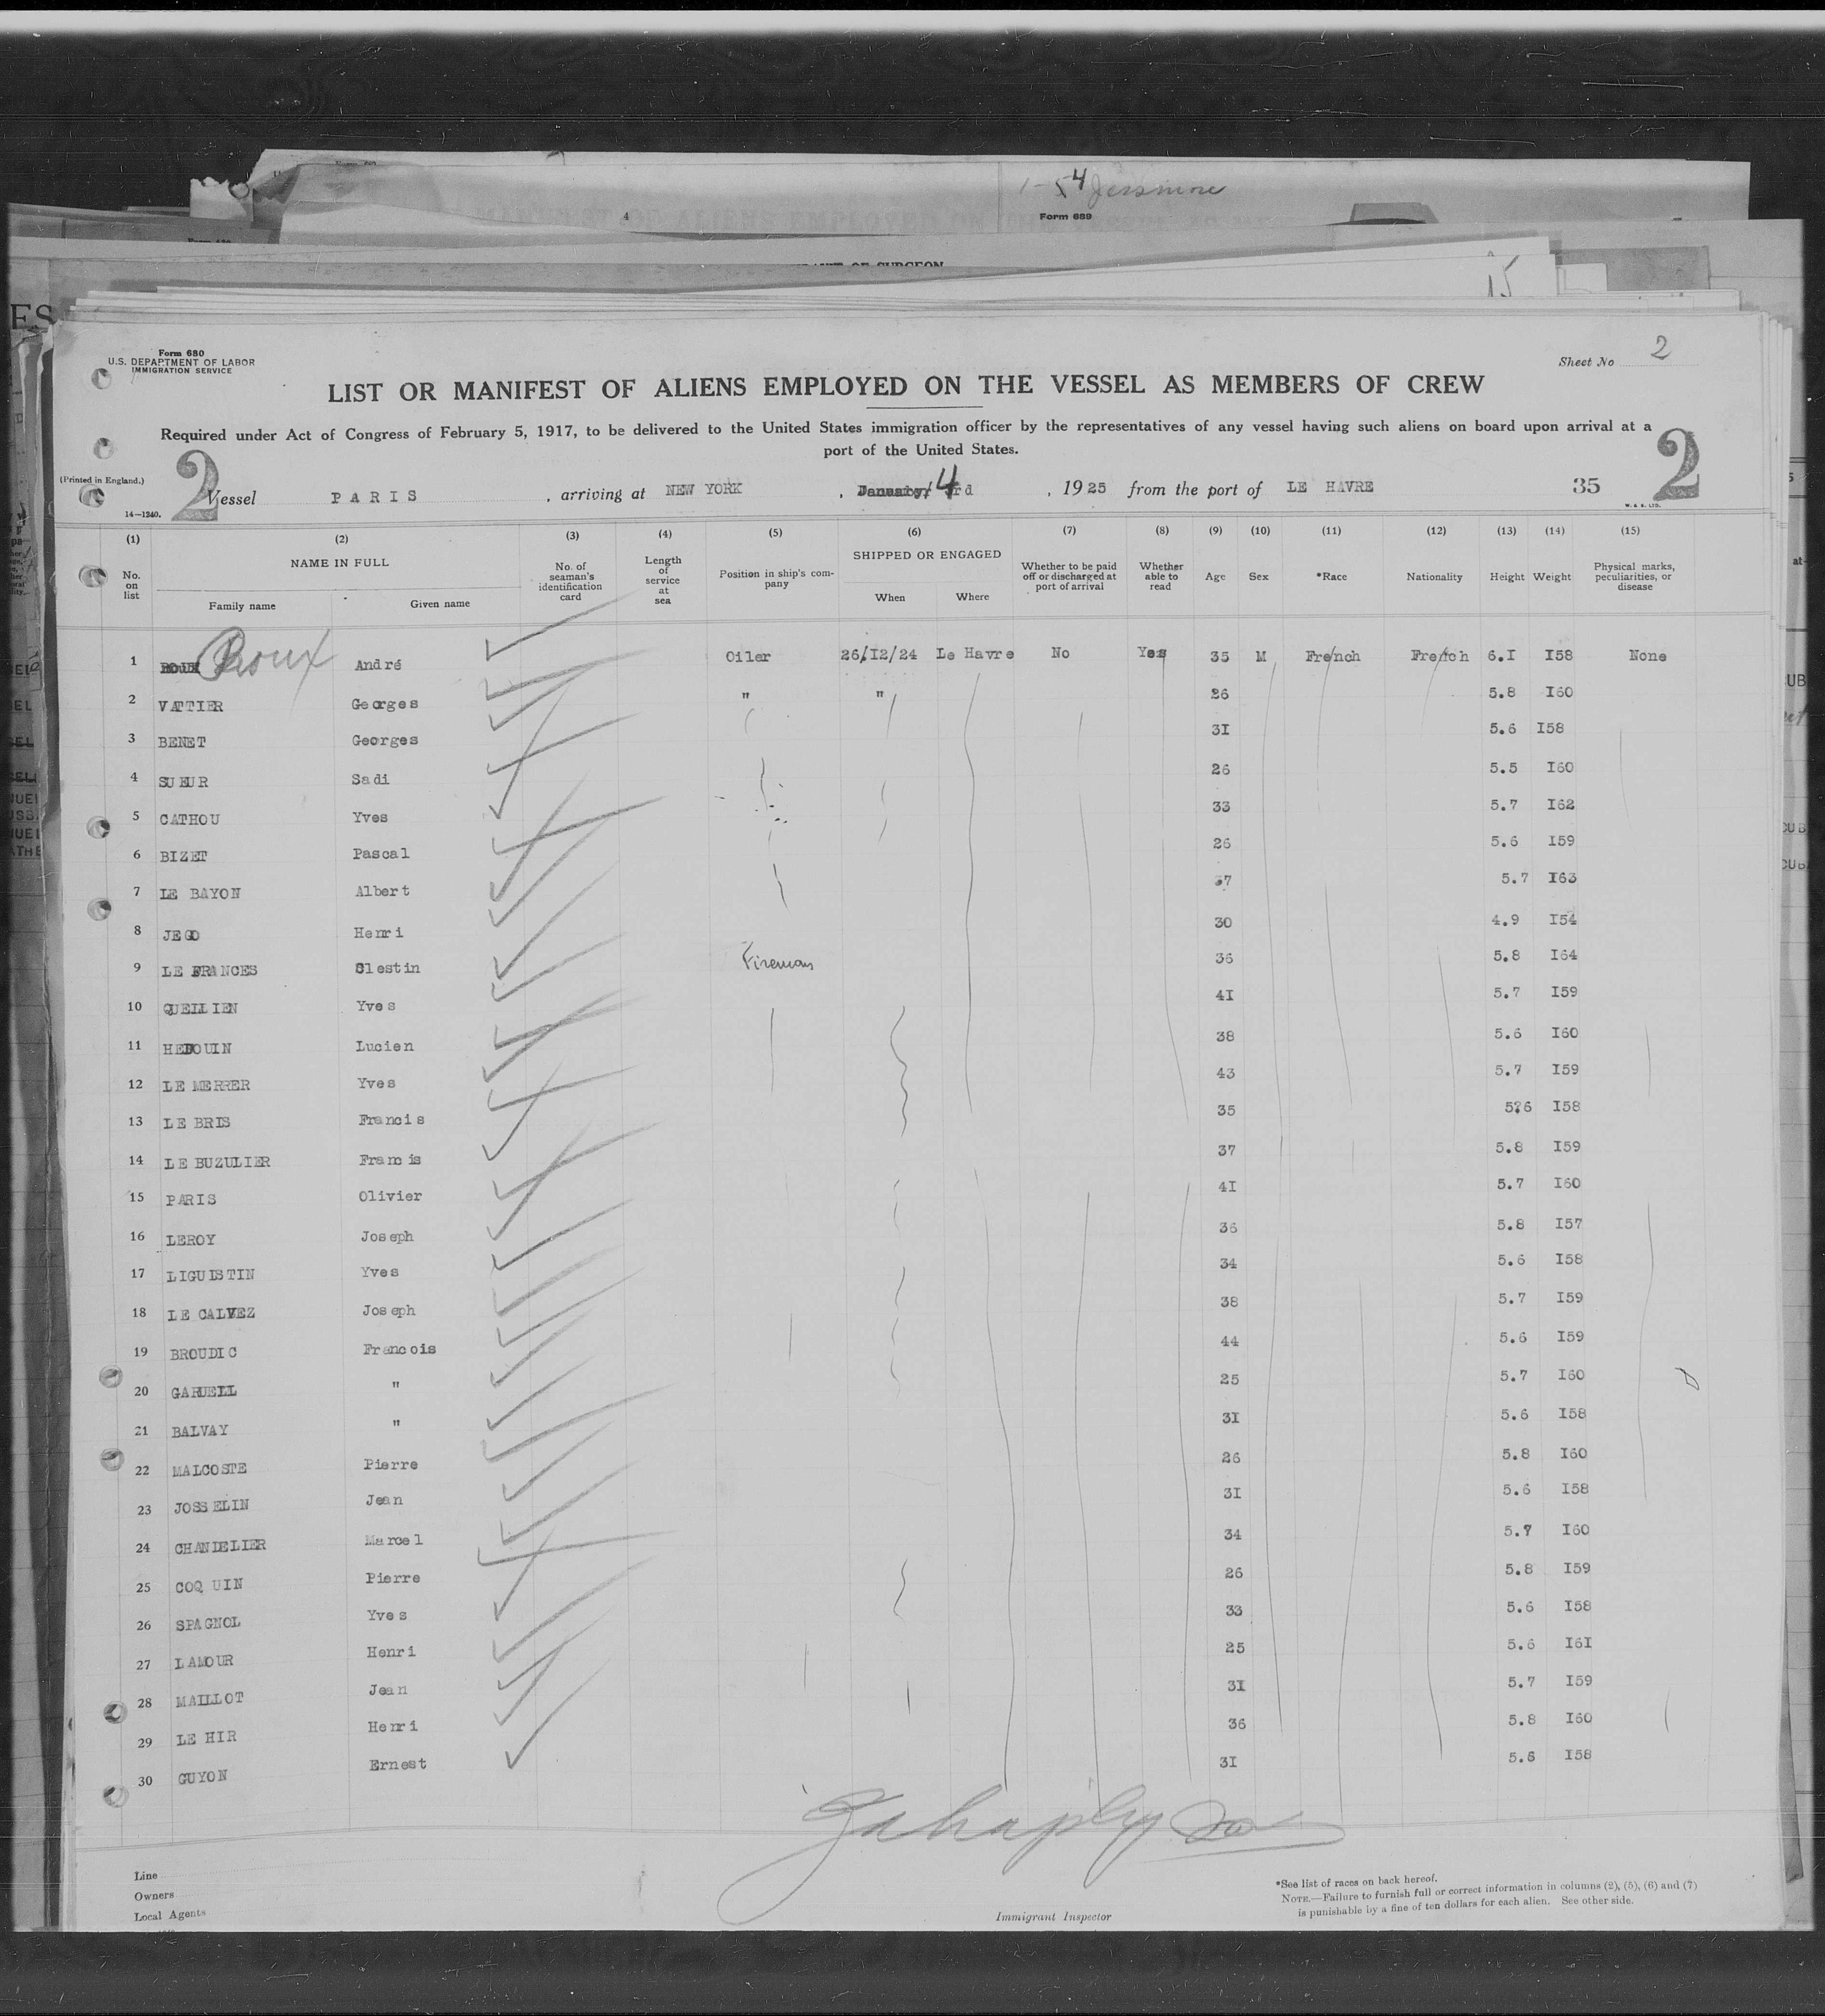 1-54 Jessmore
4
Form 689
15
Form 680
U.S. DEPARTMENT OF LABOR
IMMIGRATION SERVICE
Sheet No 2
LIST OR MANIFEST OF ALIENS EMPLOYED ON THE VESSEL AS MEMBERS OF CREW
Required under Act of Congress of February 5, 1917, to be delivered to the United States immigration officer by the representatives of any vessel having such aliens on board upon arrival at a
port of the United States.
(Printed in England.)
2 Vessel PARIS , arriving at NEW YORK , January, 4 3rd , 1925 from the port of LE HAVRE 35 2
14—1240.
W. & S. LTD.
(1) (2) (3) (4) (5) (6) (7) (8) (9) (10) (11) (12) (13) (14) (15)
No. on list NAME IN FULL Family name Given name No. of seaman's identification card Length of service at sea Position in ship's company SHIPPED OR ENGAGED When Where Whether to be paid off or discharged at port of arrival Whether able to read Age Sex *Race Nationality Height Weight Physical marks, peculiarities, or disease
1 ROUX Roux André Oiler 26/I2/24 Le Havre No Yes 35 M French French 6.I I58 None
2 VATTIER Georges " " 26 5.8 I60
3 BENET Georges 3I 5.6 I58
4 SUEUR Sadi 26 5.5 I60
5 CATHOU Yves 33 5.7 I62
6 BIZET Pascal 26 5.6 I59
7 LE BAYON Albert 37 5.7 I63
8 JEGO Henri 30 4.9 I54
9 LE FRANCES Clestin Fireman 36 5.8 I64
10 QUEILLIEN Yves 4I 5.7 I59
11 HEDOUIN Lucien 38 5.6 I60
12 LE MERRER Yves 43 5.7 I59
13 LE BRIS Francis 35 5?6 I58
14 LE BUZULIER Francis 37 5.8 I59
15 PARIS Olivier 4I 5.7 I60
16 LEROY Joseph 36 5.8 I57
17 LIGUISTIN Yves 34 5.6 I58
18 LE CALVEZ Joseph 38 5.7 I59
19 BROUDIC Francois 44 5.6 I59
20 GARUELL " 25 5.7 I60
21 BALVAY " 3I 5.6 I58
22 MALCOSTE Pierre 26 5.8 I60
23 JOSSELIN Jean 3I 5.6 I58
24 CHANDELIER Marcel 34 5.7 I60
25 COQUIN Pierre 26 5.8 I59
26 SPAGNOL Yves 33 5.6 I58
27 LAMOUR Henri 25 5.6 I6I
28 MAILLOT Jean 3I 5.7 I59
29 LE HIR Henri 36 5.8 I60
30 GUYON Ernest 3I 5.6 I58
Line
Owners
Local Agents
Immigrant Inspector
*See list of races on back hereof.
NOTE.—Failure to furnish full or correct information in columns (2), (5), (6) and (7)
is punishable by a fine of ten dollars for each alien. See other side.